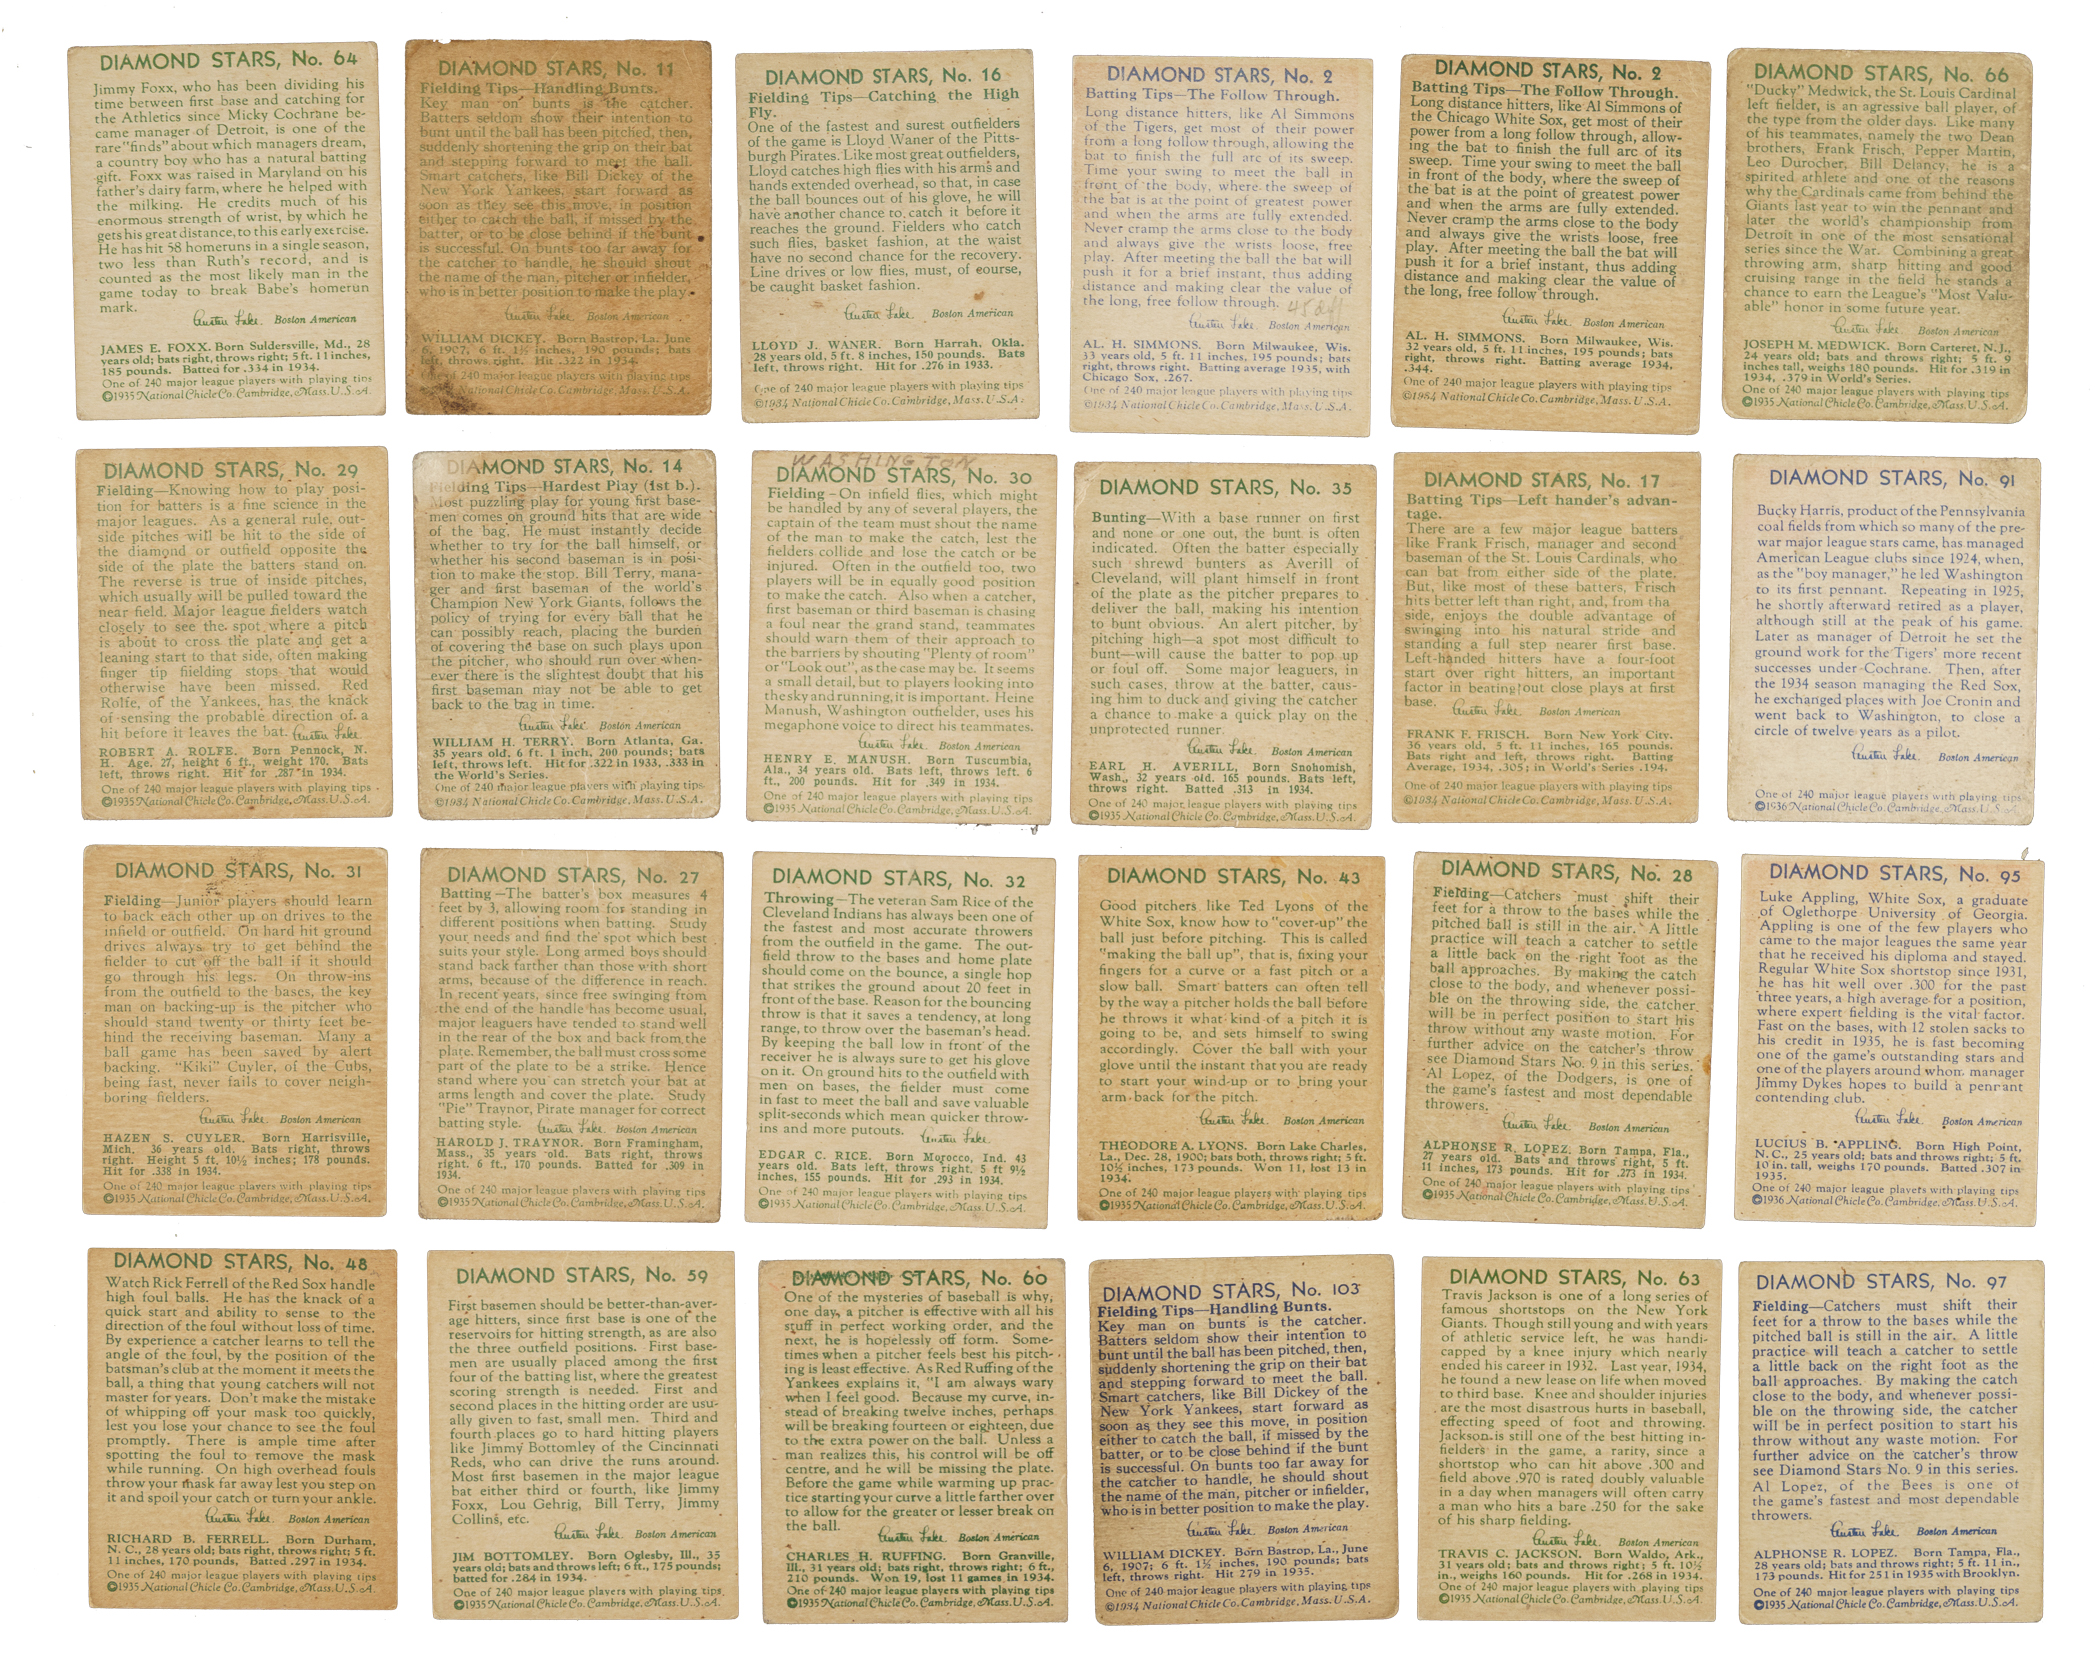 DIAMOND STARS, No. 64
Jimmy Foxx, who has been dividing his
time between first base and catching for
the Athletics since Micky Cochrane be-
came manager of Detroit, is one of the
rare "finds" about which managers dream,
a country boy who has a natural batting
gift. Foxx was raised in Maryland on his
father's dairy farm, where he helped with
the milking. He credits much of his
enormous strength of wrist, by which he
gets his great distance, to this early exercise.
He has hit 58 homeruns in a single season,
two less than Ruth's record, and is
counted as the most likely man in the
game today to break Babe's homerun
mark.
Austen Lake. Boston American
JAMES E. FOXX. Born Suldersville, Md., 28
years old; bats right, throws right; 5 ft. 11 inches,
185 pounds. Batted for .334 in 1934.
One of 240 major league players with playing tips
©1935 National Chicle Co. Cambridge, Mass. U.S.A.
DIAMOND STARS, No. 11
Fielding Tips—Handling Bunts.
Key man on bunts is the catcher.
Batters seldom show their intention to
bunt until the ball has been pitched, then,
suddenly shortening the grip on their bat
and stepping forward to meet the ball.
Smart catchers, like Bill Dickey of the
New York Yankees, start forward as
soon as they see this move, in position
either to catch the ball, if missed by the
batter, or to be close behind if the bunt
is successful. On bunts too far away for
the catcher to handle, he should shout
the name of the man, pitcher or infielder,
who is in better position to make the play.
Austen Lake. Boston American
WILLIAM DICKEY. Born Bastrop, La. June
6, 1907, 6 ft. 1½ inches, 190 pounds; bats
left, throws right. Hit .322 in 1934.
One of 240 major league players with playing tips
©1934 National Chicle Co. Cambridge, Mass. U.S.A.
DIAMOND STARS, No. 16
Fielding Tips—Catching the High
Fly.
One of the fastest and surest outfielders
of the game is Lloyd Waner of the Pitts-
burgh Pirates. Like most great outfielders,
Lloyd catches high flies with his arms and
hands extended overhead, so that, in case
the ball bounces out of his glove, he will
have another chance to catch it before it
reaches the ground. Fielders who catch
such flies, basket fashion, at the waist
have no second chance for the recovery.
Line drives or low flies, must, of course,
be caught basket fashion.
Austen Lake. Boston American
LLOYD J. WANER. Born Harrah, Okla.
28 years old, 5 ft. 8 inches, 150 pounds. Bats
left, throws right. Hit for .276 in 1933.
One of 240 major league players with playing tips
©1934 National Chicle Co. Cambridge, Mass. U.S.A.
DIAMOND STARS, No. 2
Batting Tips—The Follow Through.
Long distance hitters, like Al Simmons
of the Tigers, get most of their power
from a long follow through, allowing the
bat to finish the full arc of its sweep.
Time your swing to meet the ball in
front of the body, where the sweep of
the bat is at the point of greatest power
and when the arms are fully extended.
Never cramp the arms close to the body
and always give the wrists loose, free
play. After meeting the ball the bat will
push it for a brief instant, thus adding
distance and making clear the value of
the long, free follow through.
Austen Lake. Boston American
AL. H. SIMMONS. Born Milwaukee, Wis.
33 years old, 5 ft. 11 inches, 195 pounds; bats
right, throws right. Batting average 1935, with
Chicago Sox, .267.
One of 240 major league players with playing tips
©1934 National Chicle Co. Cambridge, Mass. U.S.A.
DIAMOND STARS, No. 2
Batting Tips—The Follow Through.
Long distance hitters, like Al Simmons of
the Chicago White Sox, get most of their
power from a long follow through, allow-
ing the bat to finish the full arc of its
sweep. Time your swing to meet the ball
in front of the body, where the sweep of
the bat is at the point of greatest power
and when the arms are fully extended.
Never cramp the arms close to the body
and always give the wrists loose, free
play. After meeting the ball the bat will
push it for a brief instant, thus adding
distance and making clear the value of
the long, free follow through.
Austen Lake. Boston American
AL. H. SIMMONS. Born Milwaukee, Wis.
32 years old, 5 ft. 11 inches, 195 pounds; bats
right, throws right. Batting average 1934,
.344.
One of 240 major league players with playing tips
©1934 National Chicle Co. Cambridge, Mass. U.S.A.
DIAMOND STARS, No. 66
"Ducky" Medwick, the St. Louis Cardinal
left fielder, is an agressive ball player, of
the type from the older days. Like many
of his teammates, namely the two Dean
brothers, Frank Frisch, Pepper Martin,
Leo Durocher, Bill Delancy, he is a
spirited athlete and one of the reasons
why the Cardinals came from behind the
Giants last year to win the pennant and
later the world's championship from
Detroit in one of the most sensational
series since the War. Combining a great
throwing arm, sharp hitting and good
cruising range in the field he stands a
chance to earn the League's "Most Valu-
able" honor in some future year.
Austen Lake. Boston American
JOSEPH M. MEDWICK. Born Carteret, N.J.,
24 years old; bats and throws right; 5 ft. 9
inches tall, weighs 180 pounds. Hit for .319 in
1934, .379 in World's Series.
One of 240 major league players with playing tips
©1935 National Chicle Co. Cambridge, Mass. U.S.A.
DIAMOND STARS, No. 29
Fielding—Knowing how to play posi-
tion for batters is a fine science in the
major leagues. As a general rule, out-
side pitches will be hit to the side of
the diamond or outfield opposite the
side of the plate the batters stand on.
The reverse is true of inside pitches,
which usually will be pulled toward the
near field. Major league fielders watch
closely to see the spot where a pitch
is about to cross the plate and get a
leaning start to that side, often making
finger tip fielding stops that would
otherwise have been missed. Red
Rolfe, of the Yankees, has the knack
of sensing the probable direction of a
hit before it leaves the bat. Austen Lake.
ROBERT A. ROLFE. Born Pennock, N.
H. Age. 27, height 6 ft., weight 170. Bats
left, throws right. Hit for .287 in 1934.
One of 240 major league players with playing tips
©1935 National Chicle Co. Cambridge, Mass. U.S.A.
DIAMOND STARS, No. 14
Fielding Tips—Hardest Play (1st b.).
Most puzzling play for young first base-
men comes on ground hits that are wide
of the bag. He must instantly decide
whether to try for the ball himself, or
whether his second baseman is in posi-
tion to make the stop. Bill Terry, mana-
ger and first baseman of the world's
Champion New York Giants, follows the
policy of trying for every ball that he
can possibly reach, placing the burden
of covering the base on such plays upon
the pitcher, who should run over when-
ever there is the slightest doubt that his
first baseman may not be able to get
back to the bag in time.
Austen Lake. Boston American
WILLIAM H. TERRY. Born Atlanta, Ga.
35 years old, 6 ft. 1 inch, 200 pounds; bats
left, throws left. Hit for .322 in 1933, .333 in
the World's Series.
One of 240 major league players with playing tips
©1934 National Chicle Co. Cambridge, Mass. U.S.A.
WASHINGTON
DIAMOND STARS, No. 30
Fielding—On infield flies, which might
be handled by any of several players, the
captain of the team must shout the name
of the man to make the catch, lest the
fielders collide and lose the catch or be
injured. Often in the outfield too, two
players will be in equally good position
to make the catch. Also when a catcher,
first baseman or third baseman is chasing
a foul near the grand stand, teammates
should warn them of their approach to
the barriers by shouting "Plenty of room"
or "Look out", as the case may be. It seems
a small detail, but to players looking into
the sky and running, it is important. Heine
Manush, Washington outfielder, uses his
megaphone voice to direct his teammates.
Austen Lake. Boston American
HENRY E. MANUSH. Born Tuscumbia,
Ala., 34 years old. Bats left, throws left. 6
ft., 200 pounds. Hit for .349 in 1934.
One of 240 major league players with playing tips
©1935 National Chicle Co. Cambridge, Mass. U.S.A.
DIAMOND STARS, No. 35
Bunting—With a base runner on first
and none or one out, the bunt is often
indicated. Often the batter especially
such shrewd bunters as Averill of
Cleveland, will plant himself in front
of the plate as the pitcher prepares to
deliver the ball, making his intention
to bunt obvious. An alert pitcher, by
pitching high—a spot most difficult to
bunt—will cause the batter to pop up
or foul off. Some major leaguers, in
such cases, throw at the batter, caus-
ing him to duck and giving the catcher
a chance to make a quick play on the
unprotected runner.
Austen Lake. Boston American
EARL H. AVERILL, Born Snohomish,
Wash., 32 years old. 165 pounds. Bats left,
throws right. Batted .313 in 1934.
One of 240 major league players with playing tips
©1935 National Chicle Co. Cambridge, Mass. U.S.A.
DIAMOND STARS, No. 17
Batting Tips—Left hander's advan-
tage.
There are a few major league batters
like Frank Frisch, manager and second
baseman of the St. Louis Cardinals, who
can bat from either side of the plate.
But, like most of these batters, Frisch
hits better left than right, and, from tha
side, enjoys the double advantage of
swinging into his natural stride and
standing a full step nearer first base.
Left-handed hitters have a four-foot
start over right hitters, an important
factor in beating out close plays at first
base. Austen Lake. Boston American
FRANK F. FRISCH. Born New York City.
36 years old, 5 ft. 11 inches, 165 pounds.
Bats right and left, throws right. Batting
Average, 1934, .305; in World's Series .194.
One of 240 major league players with playing tips
©1934 National Chicle Co. Cambridge, Mass. U.S.A.
DIAMOND STARS, No. 91
Bucky Harris, product of the Pennsylvania
coal fields from which so many of the pre-
war major league stars came, has managed
American League clubs since 1924, when,
as the "boy manager," he led Washington
to its first pennant. Repeating in 1925,
he shortly afterward retired as a player,
although still at the peak of his game.
Later as manager of Detroit he set the
ground work for the Tigers' more recent
successes under Cochrane. Then, after
the 1934 season managing the Red Sox,
he exchanged places with Joe Cronin and
went back to Washington, to close a
circle of twelve years as a pilot.
Austen Lake. Boston American
One of 240 major league players with playing tips
©1936 National Chicle Co. Cambridge, Mass. U.S.A.
DIAMOND STARS, No. 31
Fielding—Junior players should learn
to back each other up on drives to the
infield or outfield. On hard hit ground
drives always try to get behind the
fielder to cut off the ball if it should
go through his legs. On throw-ins
from the outfield to the bases, the key
man on backing-up is the pitcher who
should stand twenty or thirty feet be-
hind the receiving baseman. Many a
ball game has been saved by alert
backing. "Kiki" Cuyler, of the Cubs,
being fast, never fails to cover neigh-
boring fielders.
Austen Lake. Boston American
HAZEN S. CUYLER. Born Harrisville,
Mich. 36 years old. Bats right, throws
right. Height 5 ft. 10½ inches; 178 pounds.
Hit for .338 in 1934.
One of 240 major league players with playing tips
©1935 National Chicle Co. Cambridge, Mass. U.S.A.
DIAMOND STARS, No. 27
Batting—The batter's box measures 4
feet by 3, allowing room for standing in
different positions when batting. Study
your needs and find the spot which best
suits your style. Long armed boys should
stand back farther than those with short
arms, because of the difference in reach.
In recent years, since free swinging from
the end of the handle has become usual,
major leaguers have tended to stand well
in the rear of the box and back from the
plate. Remember, the ball must cross some
part of the plate to be a strike. Hence
stand where you can stretch your bat at
arms length and cover the plate. Study
"Pie" Traynor, Pirate manager for correct
batting style. Austen Lake. Boston American
HAROLD J. TRAYNOR. Born Framingham,
Mass., 35 years old. Bats right, throws
right. 6 ft., 170 pounds. Batted for .309 in
1934.
One of 240 major league players with playing tips
©1935 National Chicle Co. Cambridge, Mass. U.S.A.
DIAMOND STARS, No. 32
Throwing—The veteran Sam Rice of the
Cleveland Indians has always been one of
the fastest and most accurate throwers
from the outfield in the game. The out-
field throw to the bases and home plate
should come on the bounce, a single hop
that strikes the ground about 20 feet in
front of the base. Reason for the bouncing
throw is that it saves a tendency, at long
range, to throw over the baseman's head.
By keeping the ball low in front of the
receiver he is always sure to get his glove
on it. On ground hits to the outfield with
men on bases, the fielder must come
in fast to meet the ball and save valuable
split-seconds which mean quicker throw-
ins and more putouts. Austen Lake.
EDGAR C. RICE. Born Morocco, Ind. 43
years old. Bats left, throws right. 5 ft 9½
inches, 155 pounds. Hit for .293 in 1934.
One of 240 major league players with playing tips
©1935 National Chicle Co. Cambridge, Mass. U.S.A.
DIAMOND STARS, No. 43
Good pitchers like Ted Lyons of the
White Sox, know how to "cover-up" the
ball just before pitching. This is called
"making the ball up", that is, fixing your
fingers for a curve or a fast pitch or a
slow ball. Smart batters can often tell
by the way a pitcher holds the ball before
he throws it what kind of a pitch it is
going to be, and sets himself to swing
accordingly. Cover the ball with your
glove until the instant that you are ready
to start your wind-up or to bring your
arm back for the pitch.
Austen Lake. Boston American
THEODORE A. LYONS. Born Lake Charles,
La., Dec. 28, 1900; bats both, throws right; 5 ft.
10½ inches, 173 pounds. Won 11, lost 13 in
1934.
One of 240 major league players with playing tips
©1935 National Chicle Co. Cambridge, Mass. U.S.A.
DIAMOND STARS, No. 28
Fielding—Catchers must shift their
feet for a throw to the bases while the
pitched ball is still in the air. A little
practice will teach a catcher to settle
a little back on the right foot as the
ball approaches. By making the catch
close to the body, and whenever possi-
ble on the throwing side, the catcher
will be in perfect position to start his
throw without any waste motion. For
further advice on the catcher's throw
see Diamond Stars No. 9 in this series.
Al Lopez, of the Dodgers, is one of
the game's fastest and most dependable
throwers.
Austen Lake. Boston American
ALPHONSE R. LOPEZ. Born Tampa, Fla.,
27 years old. Bats and throws right, 5 ft.
11 inches, 173 pounds. Hit for .273 in 1934.
One of 240 major league players with playing tips
©1935 National Chicle Co. Cambridge, Mass. U.S.A.
DIAMOND STARS, No. 95
Luke Appling, White Sox, a graduate
of Oglethorpe University of Georgia.
Appling is one of the few players who
came to the major leagues the same year
that he received his diploma and stayed.
Regular White Sox shortstop since 1931,
he has hit well over .300 for the past
three years, a high average for a position,
where expert fielding is the vital factor.
Fast on the bases, with 12 stolen sacks to
his credit in 1935, he is fast becoming
one of the game's outstanding stars and
one of the players around whom manager
Jimmy Dykes hopes to build a pennant
contending club.
Austen Lake. Boston American
LUCIUS B. APPLING. Born High Point,
N. C., 25 years old; bats and throws right; 5 ft.
10 in. tall, weighs 170 pounds. Batted .307 in
1935.
One of 240 major league players with playing tips
©1936 National Chicle Co. Cambridge, Mass. U.S.A.
DIAMOND STARS, No. 48
Watch Rick Ferrell of the Red Sox handle
high foul balls. He has the knack of a
quick start and ability to sense to the
direction of the foul without loss of time.
By experience a catcher learns to tell the
angle of the foul, by the position of the
batsman's club at the moment it meets the
ball, a thing that young catchers will not
master for years. Don't make the mistake
of whipping off your mask too quickly,
lest you lose your chance to see the foul
promptly. There is ample time after
spotting the foul to remove the mask
while running. On high overhead fouls
throw your mask far away lest you step on
it and spoil your catch or turn your ankle.
Austen Lake. Boston American
RICHARD B. FERRELL. Born Durham,
N. C., 28 years old; bats right, throws right; 5 ft.
11 inches, 170 pounds, Batted .297 in 1934.
One of 240 major league players with playing tips
©1935 National Chicle Co. Cambridge, Mass. U.S.A.
DIAMOND STARS, No. 59
First basemen should be better-than-aver-
age hitters, since first base is one of the
reservoirs for hitting strength, as are also
the three outfield positions. First base-
men are usually placed among the first
four of the batting list, where the greatest
scoring strength is needed. First and
second places in the hitting order are usu-
ally given to fast, small men. Third and
fourth places go to hard hitting players
like Jimmy Bottomley of the Cincinnati
Reds, who can drive the runs around.
Most first basemen in the major league
bat either third or fourth, like Jimmy
Foxx, Lou Gehrig, Bill Terry, Jimmy
Collins, etc.
Austen Lake. Boston American
JIM BOTTOMLEY. Born Oglesby, Ill., 35
years old; bats and throws left; 6 ft., 175 pounds;
batted for .284 in 1934.
One of 240 major league players with playing tips
©1935 National Chicle Co. Cambridge, Mass. U.S.A.
DIAMOND STARS, No. 60
One of the mysteries of baseball is why,
one day, a pitcher is effective with all his
stuff in perfect working order, and the
next, he is hopelessly off form. Some-
times when a pitcher feels best his pitch-
ing is least effective. As Red Ruffing of the
Yankees explains it, "I am always wary
when I feel good. Because my curve, in-
stead of breaking twelve inches, perhaps
will be breaking fourteen or eighteen, due
to the extra power on the ball. Unless a
man realizes this, his control will be off
centre, and he will be missing the plate.
Before the game while warming up prac-
tice starting your curve a little farther over
to allow for the greater or lesser break on
the ball.
Austen Lake. Boston American
CHARLES H. RUFFING. Born Granville,
Ill., 31 years old; bats right, throws right; 6 ft.,
210 pounds. Won 19, lost 11 games in 1934.
One of 240 major league players with playing tips
©1935 National Chicle Co. Cambridge, Mass. U.S.A.
DIAMOND STARS, No. 103
Fielding Tips—Handling Bunts.
Key man on bunts is the catcher.
Batters seldom show their intention to
bunt until the ball has been pitched, then,
suddenly shortening the grip on their bat
and stepping forward to meet the ball.
Smart catchers, like Bill Dickey of the
New York Yankees, start forward as
soon as they see this move, in position
either to catch the ball, if missed by the
batter, or to be close behind if the bunt
is successful. On bunts too far away for
the catcher to handle, he should shout
the name of the man, pitcher or infielder,
who is in better position to make the play.
Austen Lake. Boston American
WILLIAM DICKEY. Born Bastrop, La., June
6, 1907; 6 ft. 1½ inches, 190 pounds; bats
left, throws right. Hit 279 in 1935.
One of 240 major league players with playing tips
©1934 National Chicle Co. Cambridge, Mass. U.S.A.
DIAMOND STARS, No. 63
Travis Jackson is one of a long series of
famous shortstops on the New York
Giants. Though still young and with years
of athletic service left, he was handi-
capped by a knee injury which nearly
ended his career in 1932. Last year, 1934,
he found a new lease on life when moved
to third base. Knee and shoulder injuries
are the most disastrous hurts in baseball,
effecting speed of foot and throwing.
Jackson is still one of the best hitting in-
fielders in the game, a rarity, since a
shortstop who can hit above .300 and
field above .970 is rated doubly valuable
in a day when managers will often carry
a man who hits a bare .250 for the sake
of his sharp fielding.
Austen Lake. Boston American
TRAVIS C. JACKSON. Born Waldo, Ark.,
31 years old; bats and throws right; 5 ft. 10½
in., weighs 160 pounds. Hit for .268 in 1934.
One of 240 major league players with playing tips
©1935 National Chicle Co. Cambridge, Mass. U.S.A.
DIAMOND STARS, No. 97
Fielding—Catchers must shift their
feet for a throw to the bases while the
pitched ball is still in the air. A little
practice will teach a catcher to settle
a little back on the right foot as the
ball approaches. By making the catch
close to the body, and whenever possi-
ble on the throwing side, the catcher
will be in perfect position to start his
throw without any waste motion. For
further advice on the catcher's throw
see Diamond Stars No. 9 in this series.
Al Lopez, of the Bees is one of
the game's fastest and most dependable
throwers.
Austen Lake. Boston American
ALPHONSE R. LOPEZ. Born Tampa, Fla.,
28 years old; bats and throws right; 5 ft. 11 in.,
173 pounds. Hit for 251 in 1935 with Brooklyn.
One of 240 major league players with playing tips
©1935 National Chicle Co. Cambridge, Mass. U.S.A.